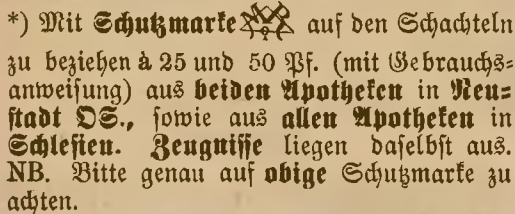 *) Mit Schutzmarke auf den Schachteln
zu beziehen à 25 und 50 Pf. (mit Gebrauchs-
anweisung) aus beiden Apotheken in Neu-
stadt OS., sowie aus allen Apotheken in
Schlesien. Zeugnisse liegen daselbst aus.
NB. Bitte genau auf obige Schutzmarke zu
achten.